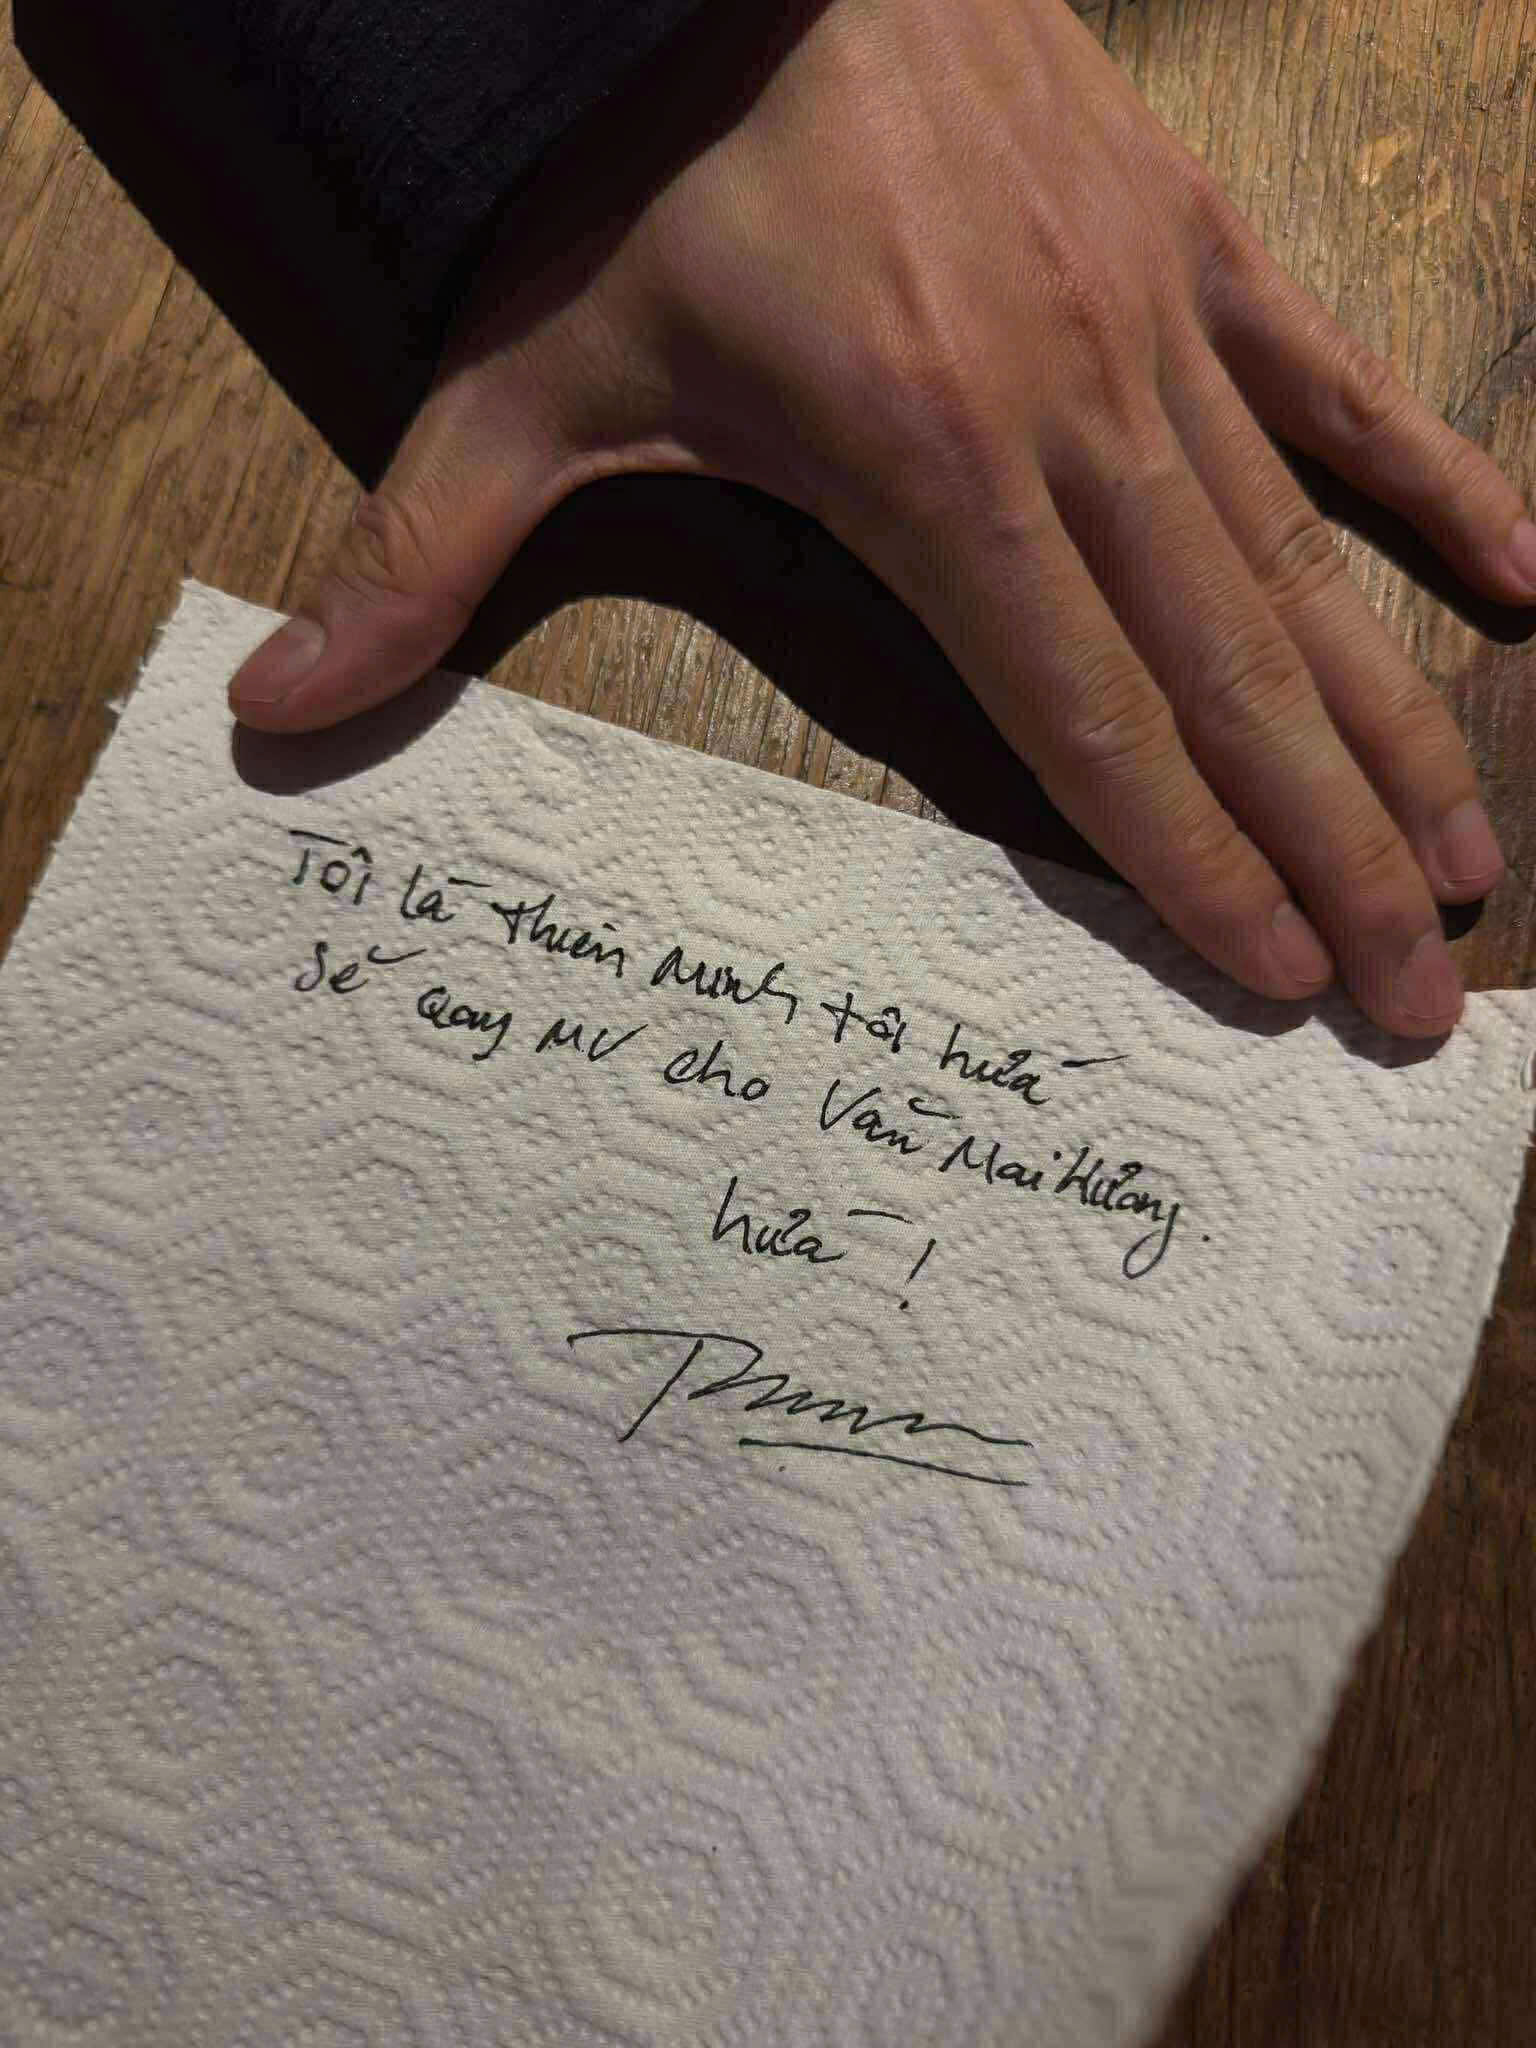 Tôi là thiên Minh tôi hứa
sẽ quay MV cho Văn Mai Hương.
hứa!